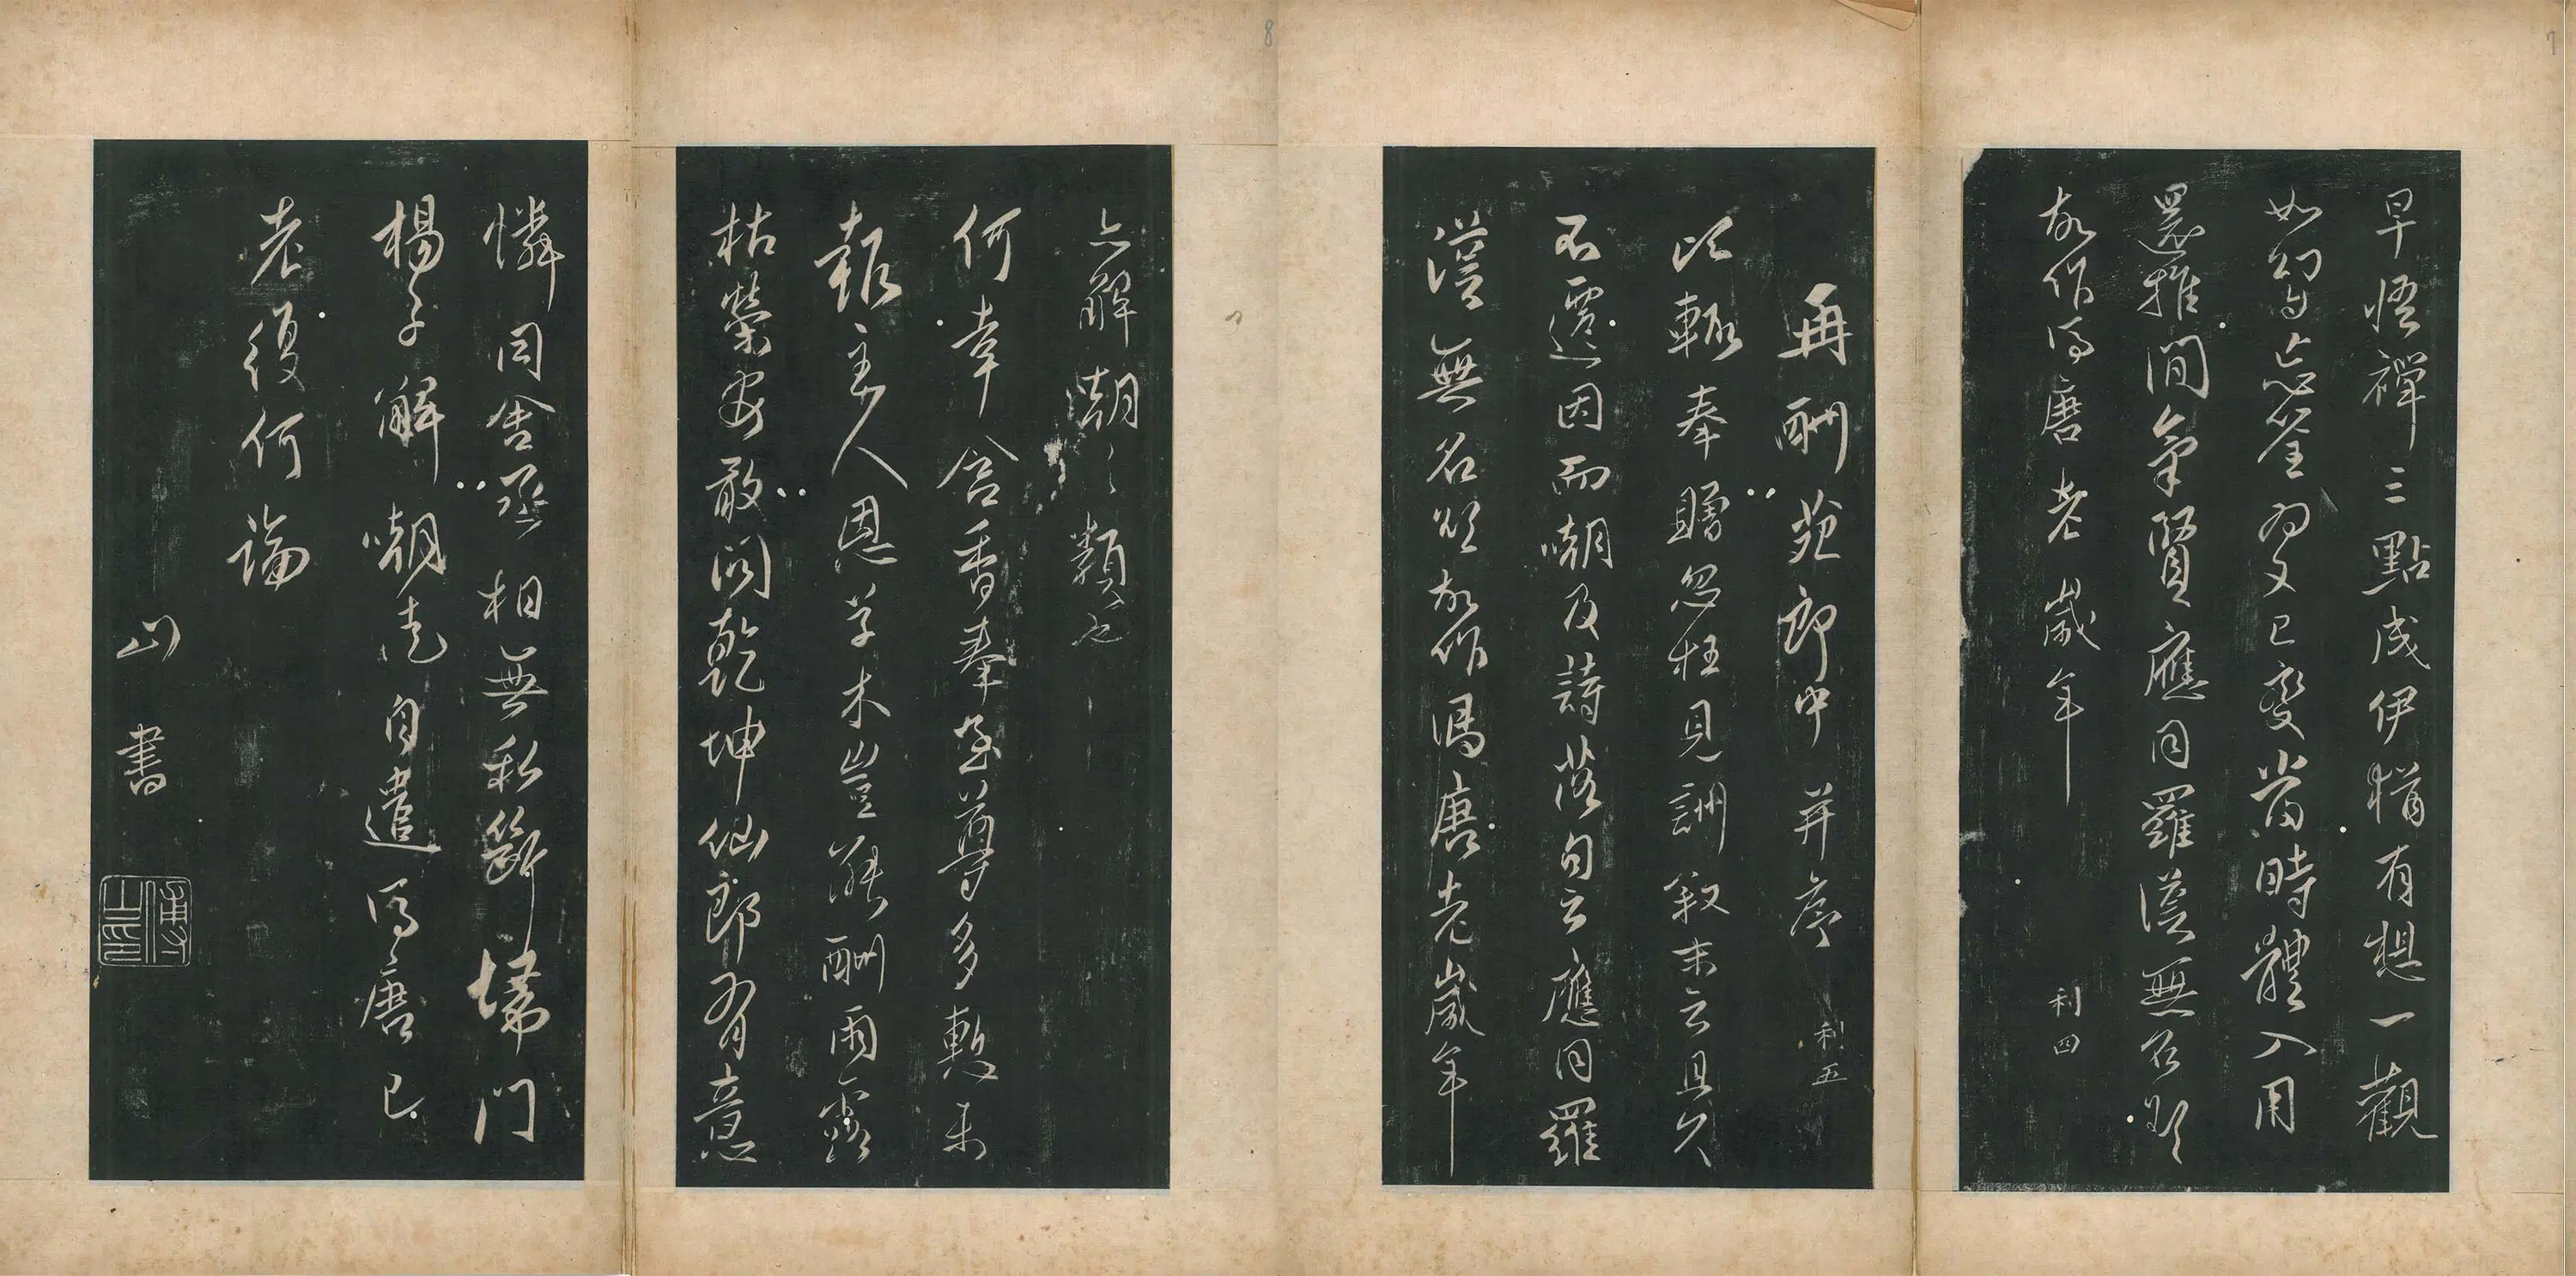 早悟禪三點成伊猶有想一觀
如幻自忘筌為文已變當時體入用
還推間氣賢應同羅漢無名欲
故作馮唐老歲年
利四
再酬苑郎中并序
利五
頃輒奉贈忽枉見詶叙末云且久
不遷因而嘲及詩落句云應同羅
漢無名欲故作馮唐老歲年
亦解嘲之類也
何幸含香奉至尊多慙未
報主人恩草木豈能酬雨露
枯榮安敢問乾坤仙郎有意
憐同舍丞相無私斷掃門
楊子解嘲徒自遣馮唐已
老復何論
山書
傅山印